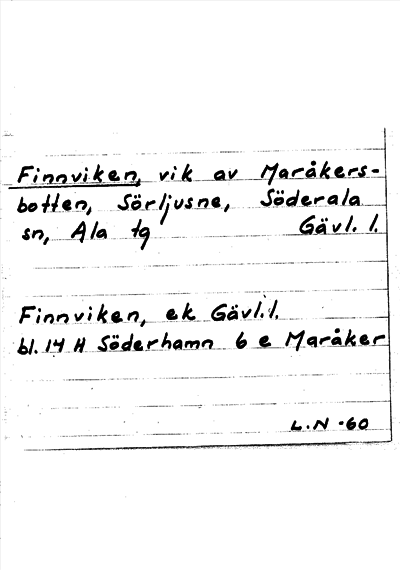 Finnviken, vik av Maråkers-
botten, Sörljusne, Söderala
sn, Ala tg Gävl. l.
Finnviken, ek Gävl.l.
bl. 14 H Söderhamn 6 e Maråker
L.N -60